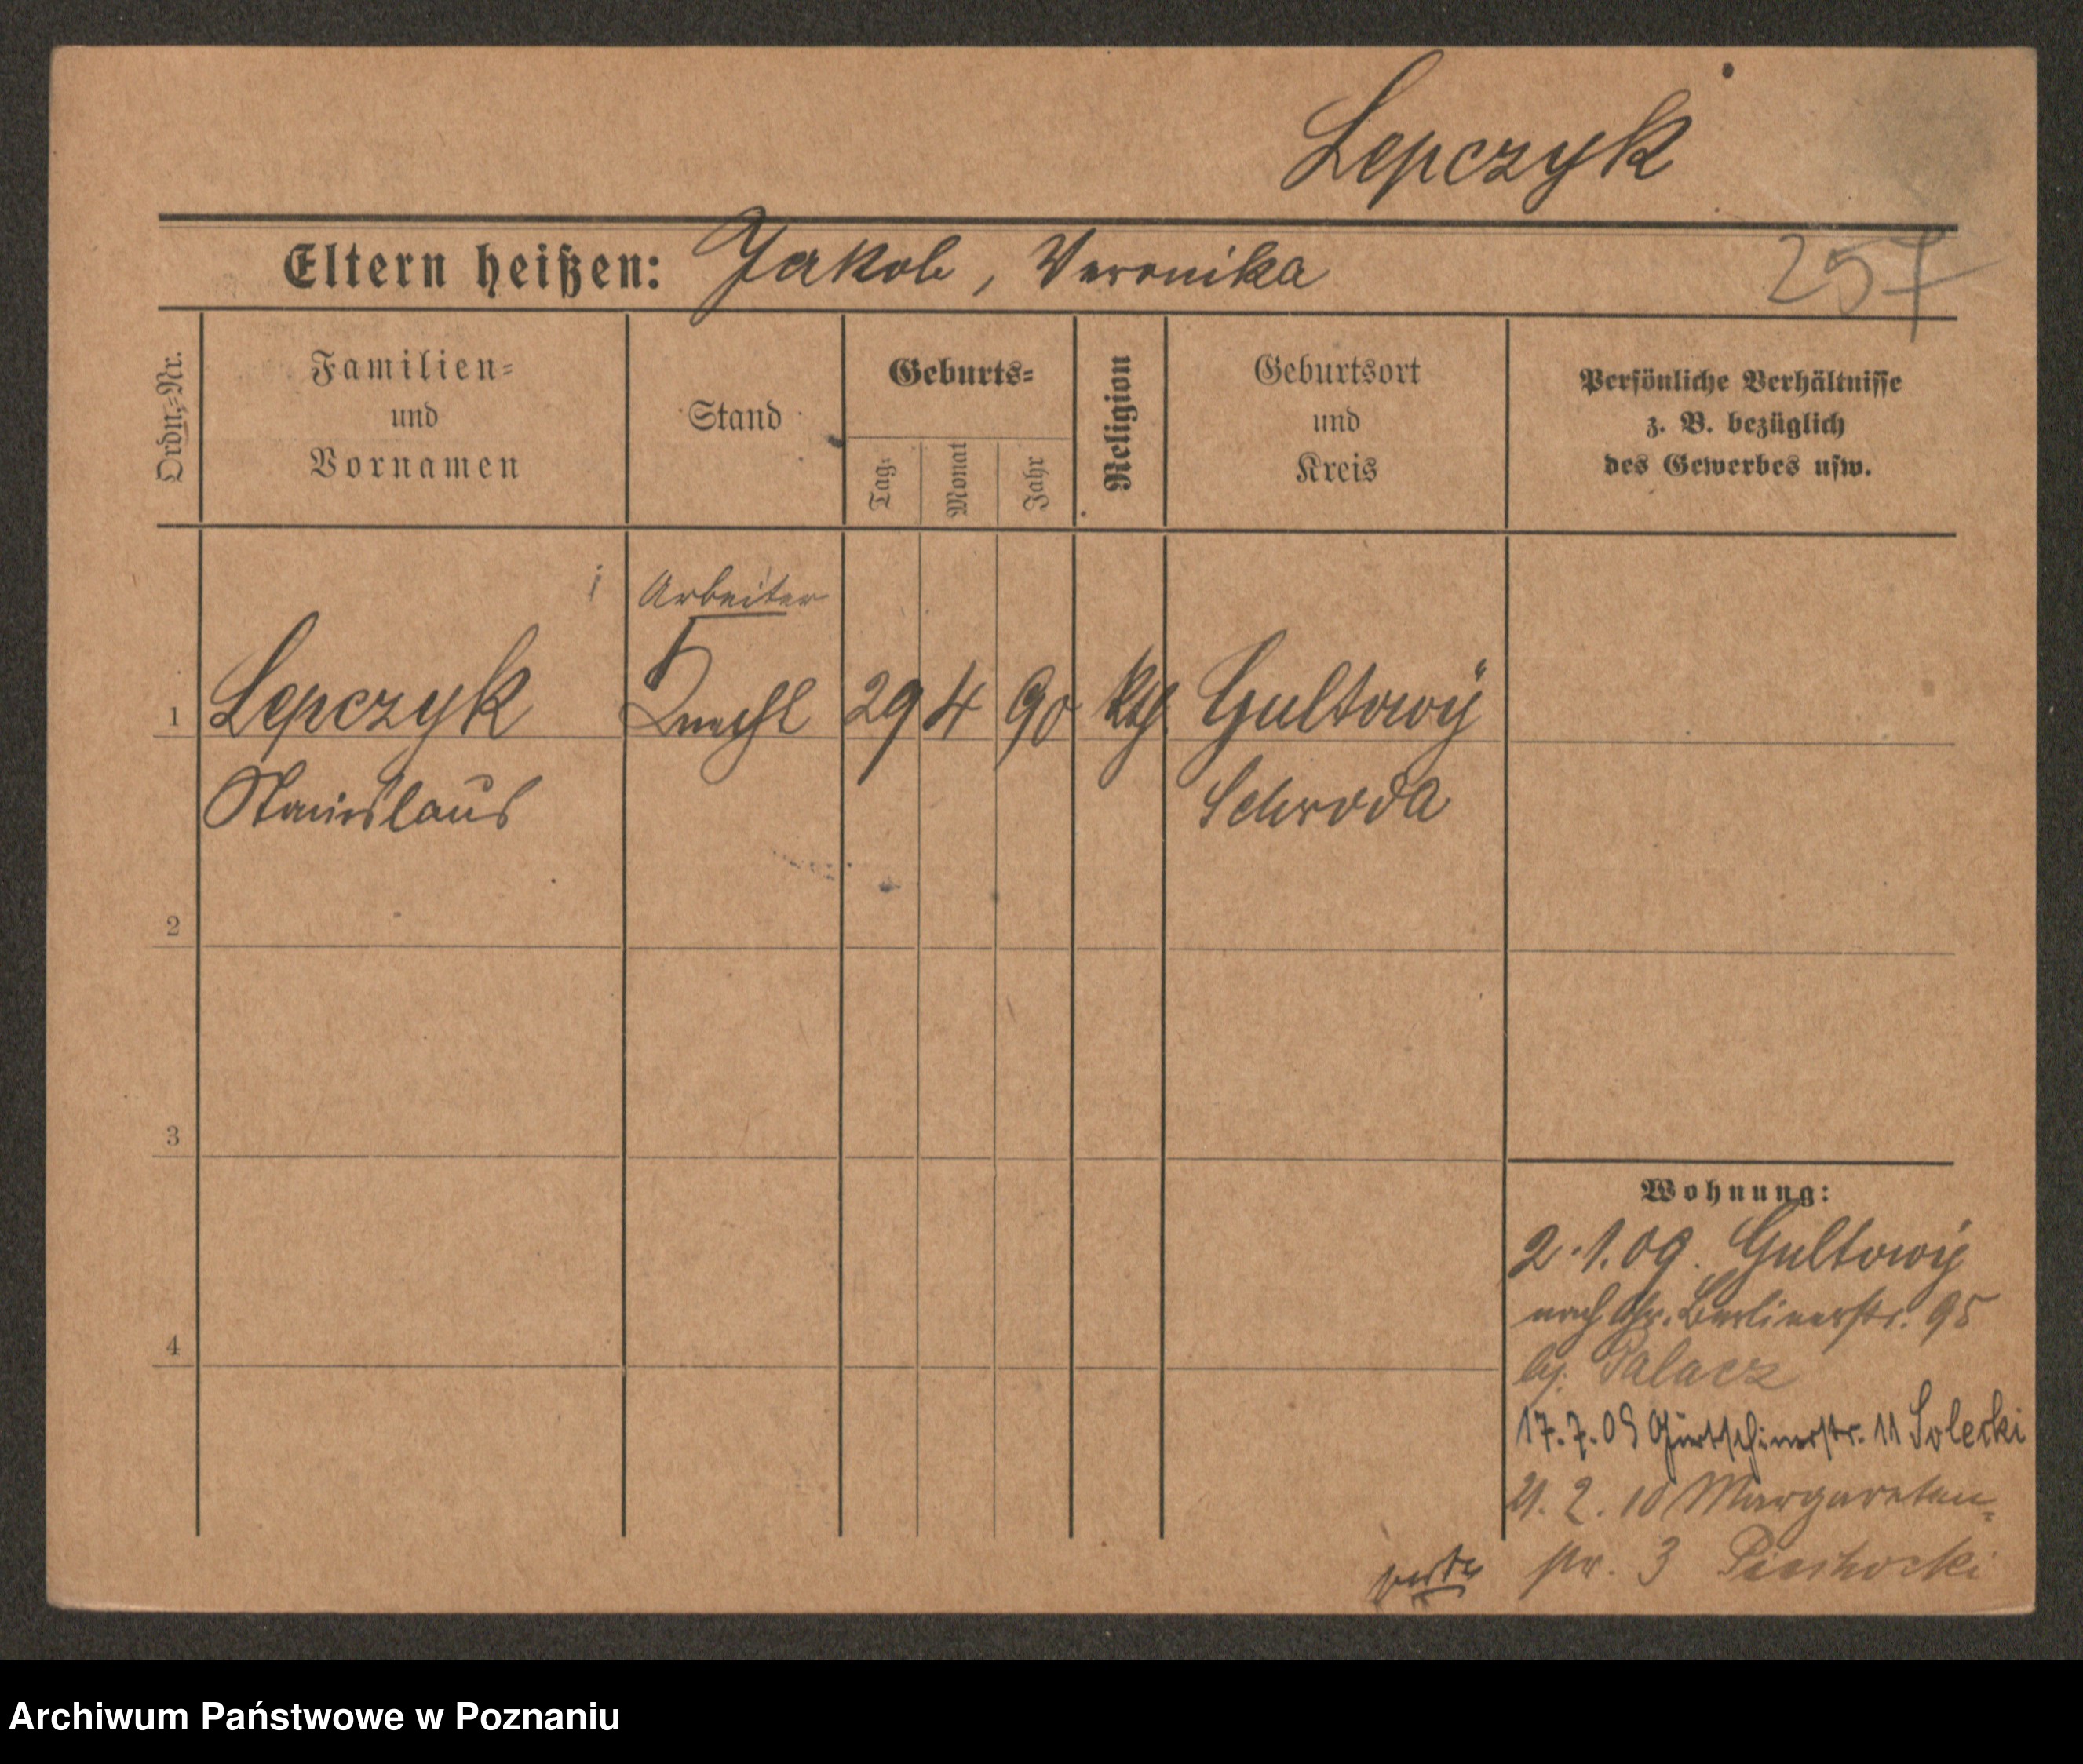 Lepczyk
Eltern heißen: Jakob, Veronika
257
Ordn.-Nr.
Familien-
und
Vornamen
Stand
Geburts-
Tag
Monat
Jahr
Religion
Geburtsort
und
Kreis
Persönliche Verhältnisse
z. B. bezüglich
des Gewerbes usw.
Arbeiter
1 Lepczyk Knecht 29 4 90 kth. Gultowÿ
Stanislaus Schroda
2
3
4
Wohnung:
2.1.09. Gultowÿ
nach Gr. Berlinerstr. 95
bj. Palacz
17.7.09 Gurtschinerstr. 11 Solecki
21.2.10 Margareten-
str. 3 Piechocki
Archiwum Państwowe w Poznaniu